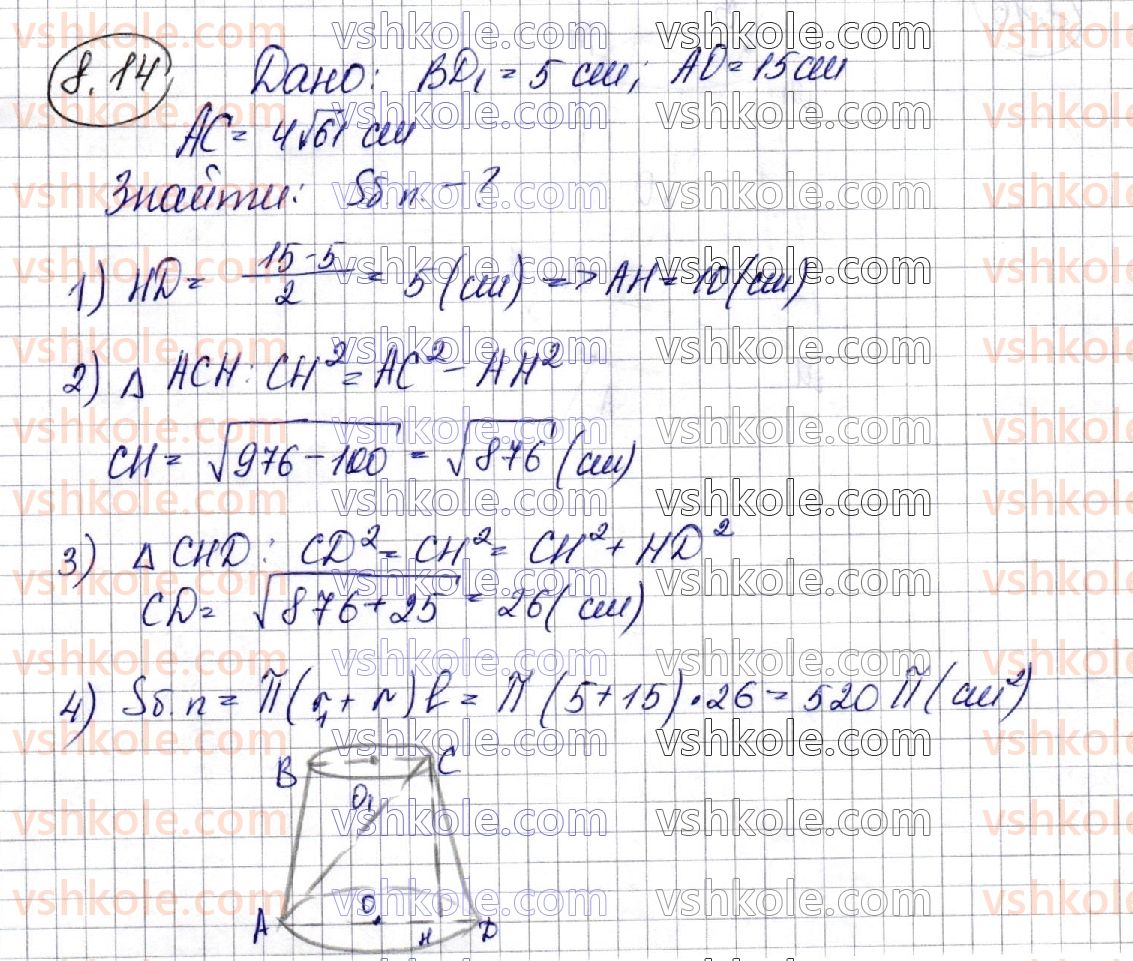 8.14, Дано: BD₁ = 5 см; AO = 15 см
AC = 4√61 см
Знайти: Sб.п. - ?
1) HD = (15-5)/2 = 5 (см) => AH = 10 (см)
2) △ ACH: CH² = AC² - AH²
CH = √(976 - 100) = √876 (см)
3) △ CHD: CD² = CH² = CH² + HD²
CD = √(876 + 25) = 26 (см)
4) Sб.п = π(r₁ + r) l = π (5 + 15) · 26 = 520 π (см²)
B C
O₁
A O H D
vshkole.com